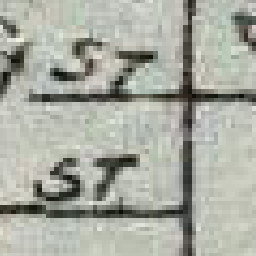 ST
ST